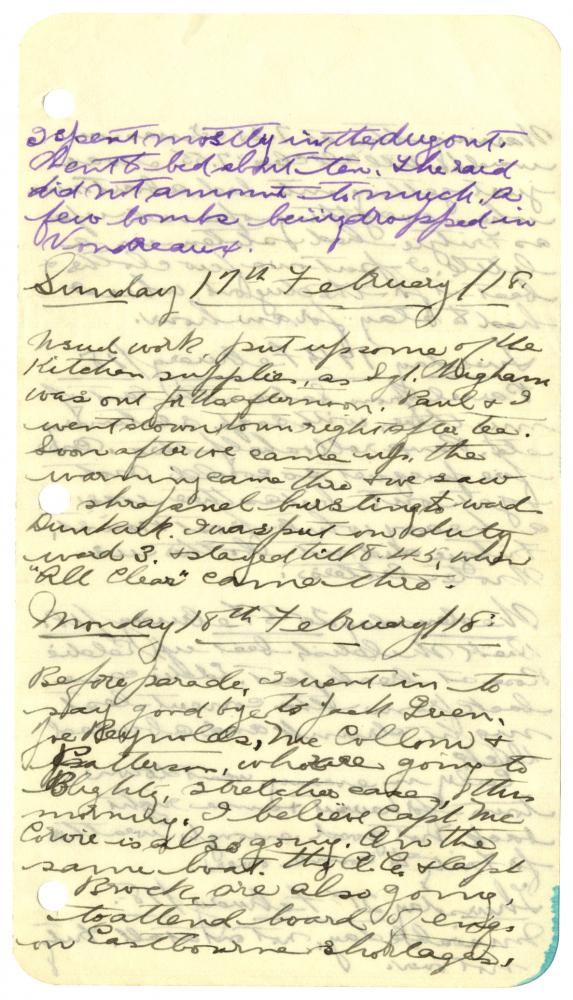 I spent mostly in the dugout.
Went to bed about ten. The raid
did not amount to much. a
few bombs being dropped in
Vondreaux.
Sunday 17th February/18.
Usual work, put up some of the
Kitchen supplies, as Sgt. Bigham
was out for the afternoon. Paul & I
went down town right after tea.
Soon after we came up, the
warning came thro & we saw
shrapnel bursting toward
Dunkirk. I was put on duty
ward 3. & stayed till 8.45, when
"All Clear" came thro.
Monday 18th February/18.
Before parade, I went in to
say good bye to Jack
Joe Reynolds, McCollom &
Patterson, who are going to
Blighty, stretcher cases, this
morning. I believe Capt. Mc
is also going. On the
same boat. The C.C. & Capt
Brock, are also going,
to attend board of
on Eastbourne shortages.